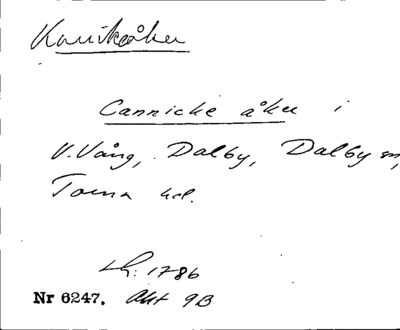 Kanikåker
Cannicke åker i
V. Vång, Dalby, Dalby sn,
Torna hd.
Lh: 1786
Nr 6247. Akt 9B